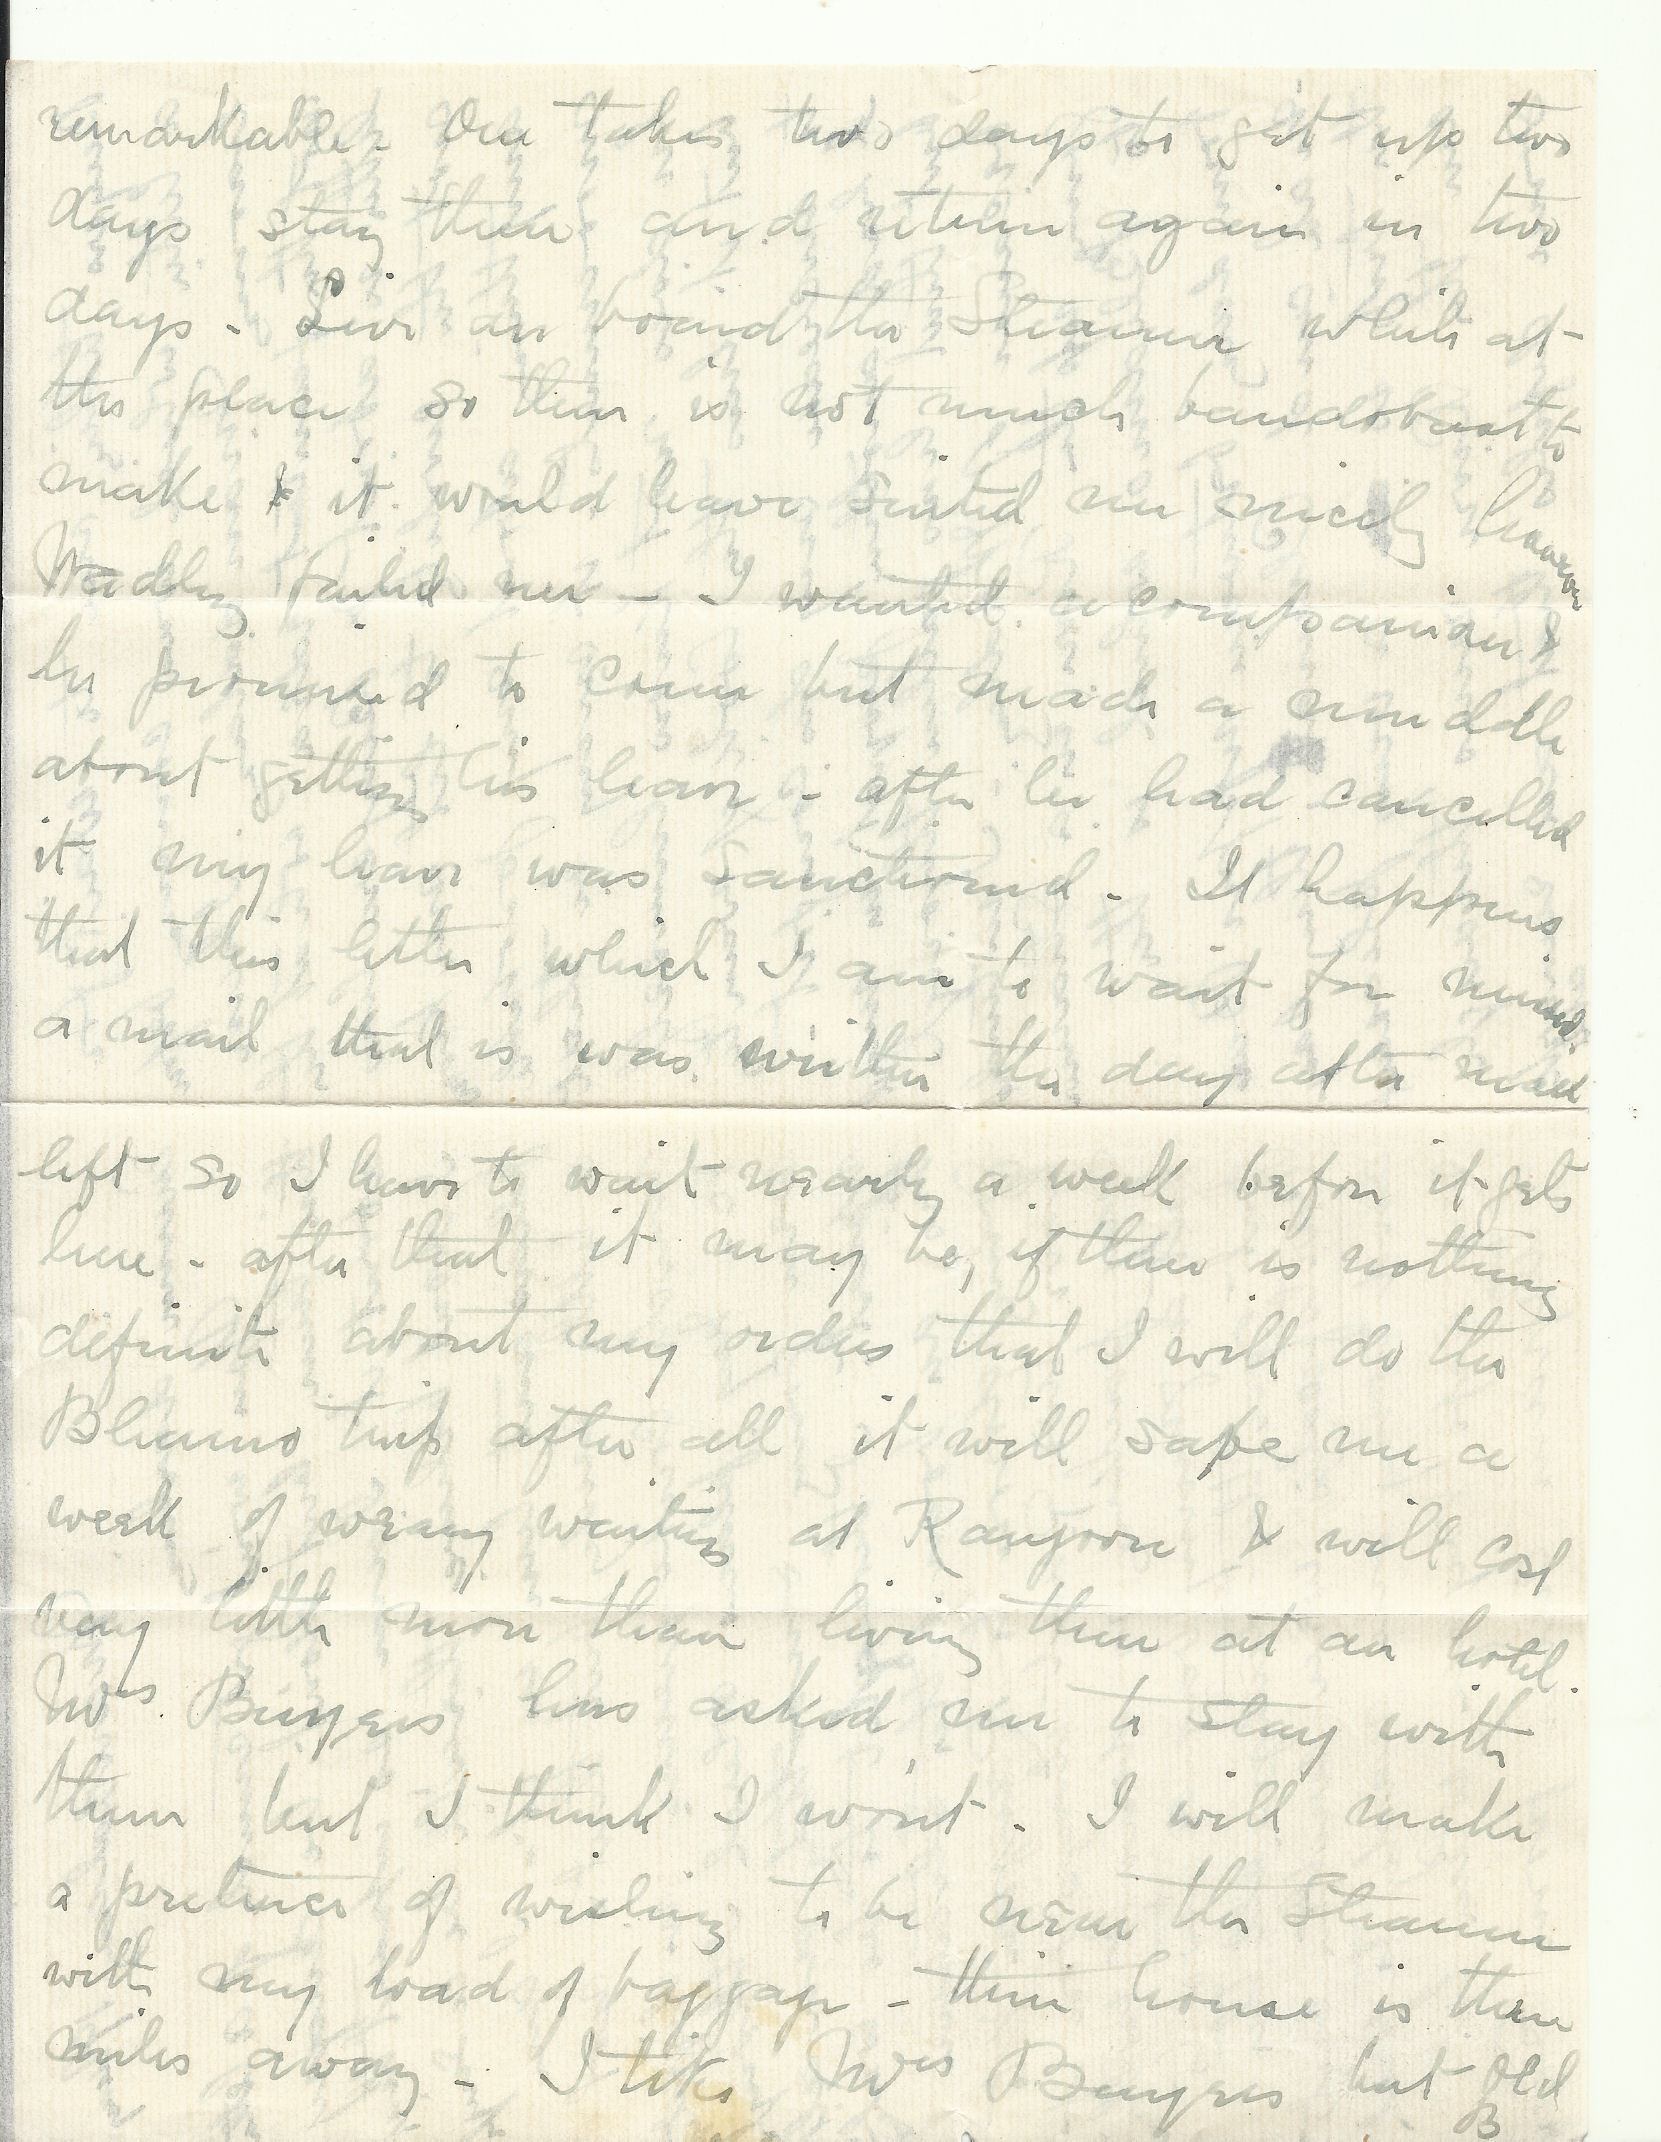 remarkable. One takes two days to get up two
days stay there and return again in two
days - Live on board the Steamer while at
the place so there is not much bandobast to
make & it would have suited me nicely however
Wadley failed me - I wanted a companion &
he promised to come but made a muddle
about getting his leave - after he had cancelled
it my leave was sanctioned - It happens
that this letter which I am to wait for missed
a mail that is was written the day after mail
left so I have to wait nearly a week before it gets
here - after that it may be, if there is nothing
definite about my orders that I will do the
Bhamo trip after all it will save me a
week of weary waiting at Rangoon & will cost
very little more than living there at an hotel.
Mrs Buyers has asked me to stay with
them but I think I wont - I will make
a pretence of wishing to be near the Steamer
with my load of baggage - their house is three
miles away - I like Mrs Buyers but Old
B